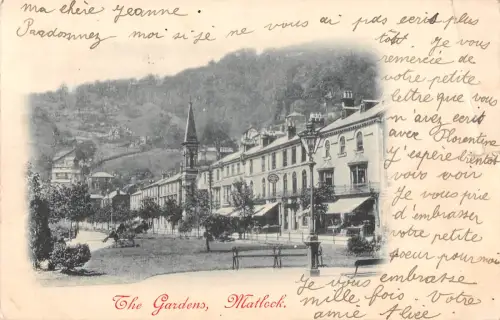 ma chère Jeanne
Pardonnez moi si je ne vous ai pas ecris plus
tôt. Je vous
remercie de
votre petite
lettre que vous
m'avez ecris
avec Florentine
J'espère bientôt
vous voir
Je vous prie
d'embrasser
votre petite
soeur pour moi
Je vous embrasse
mille fois. Votre
amie Alice.
The Gardens, Matlock.